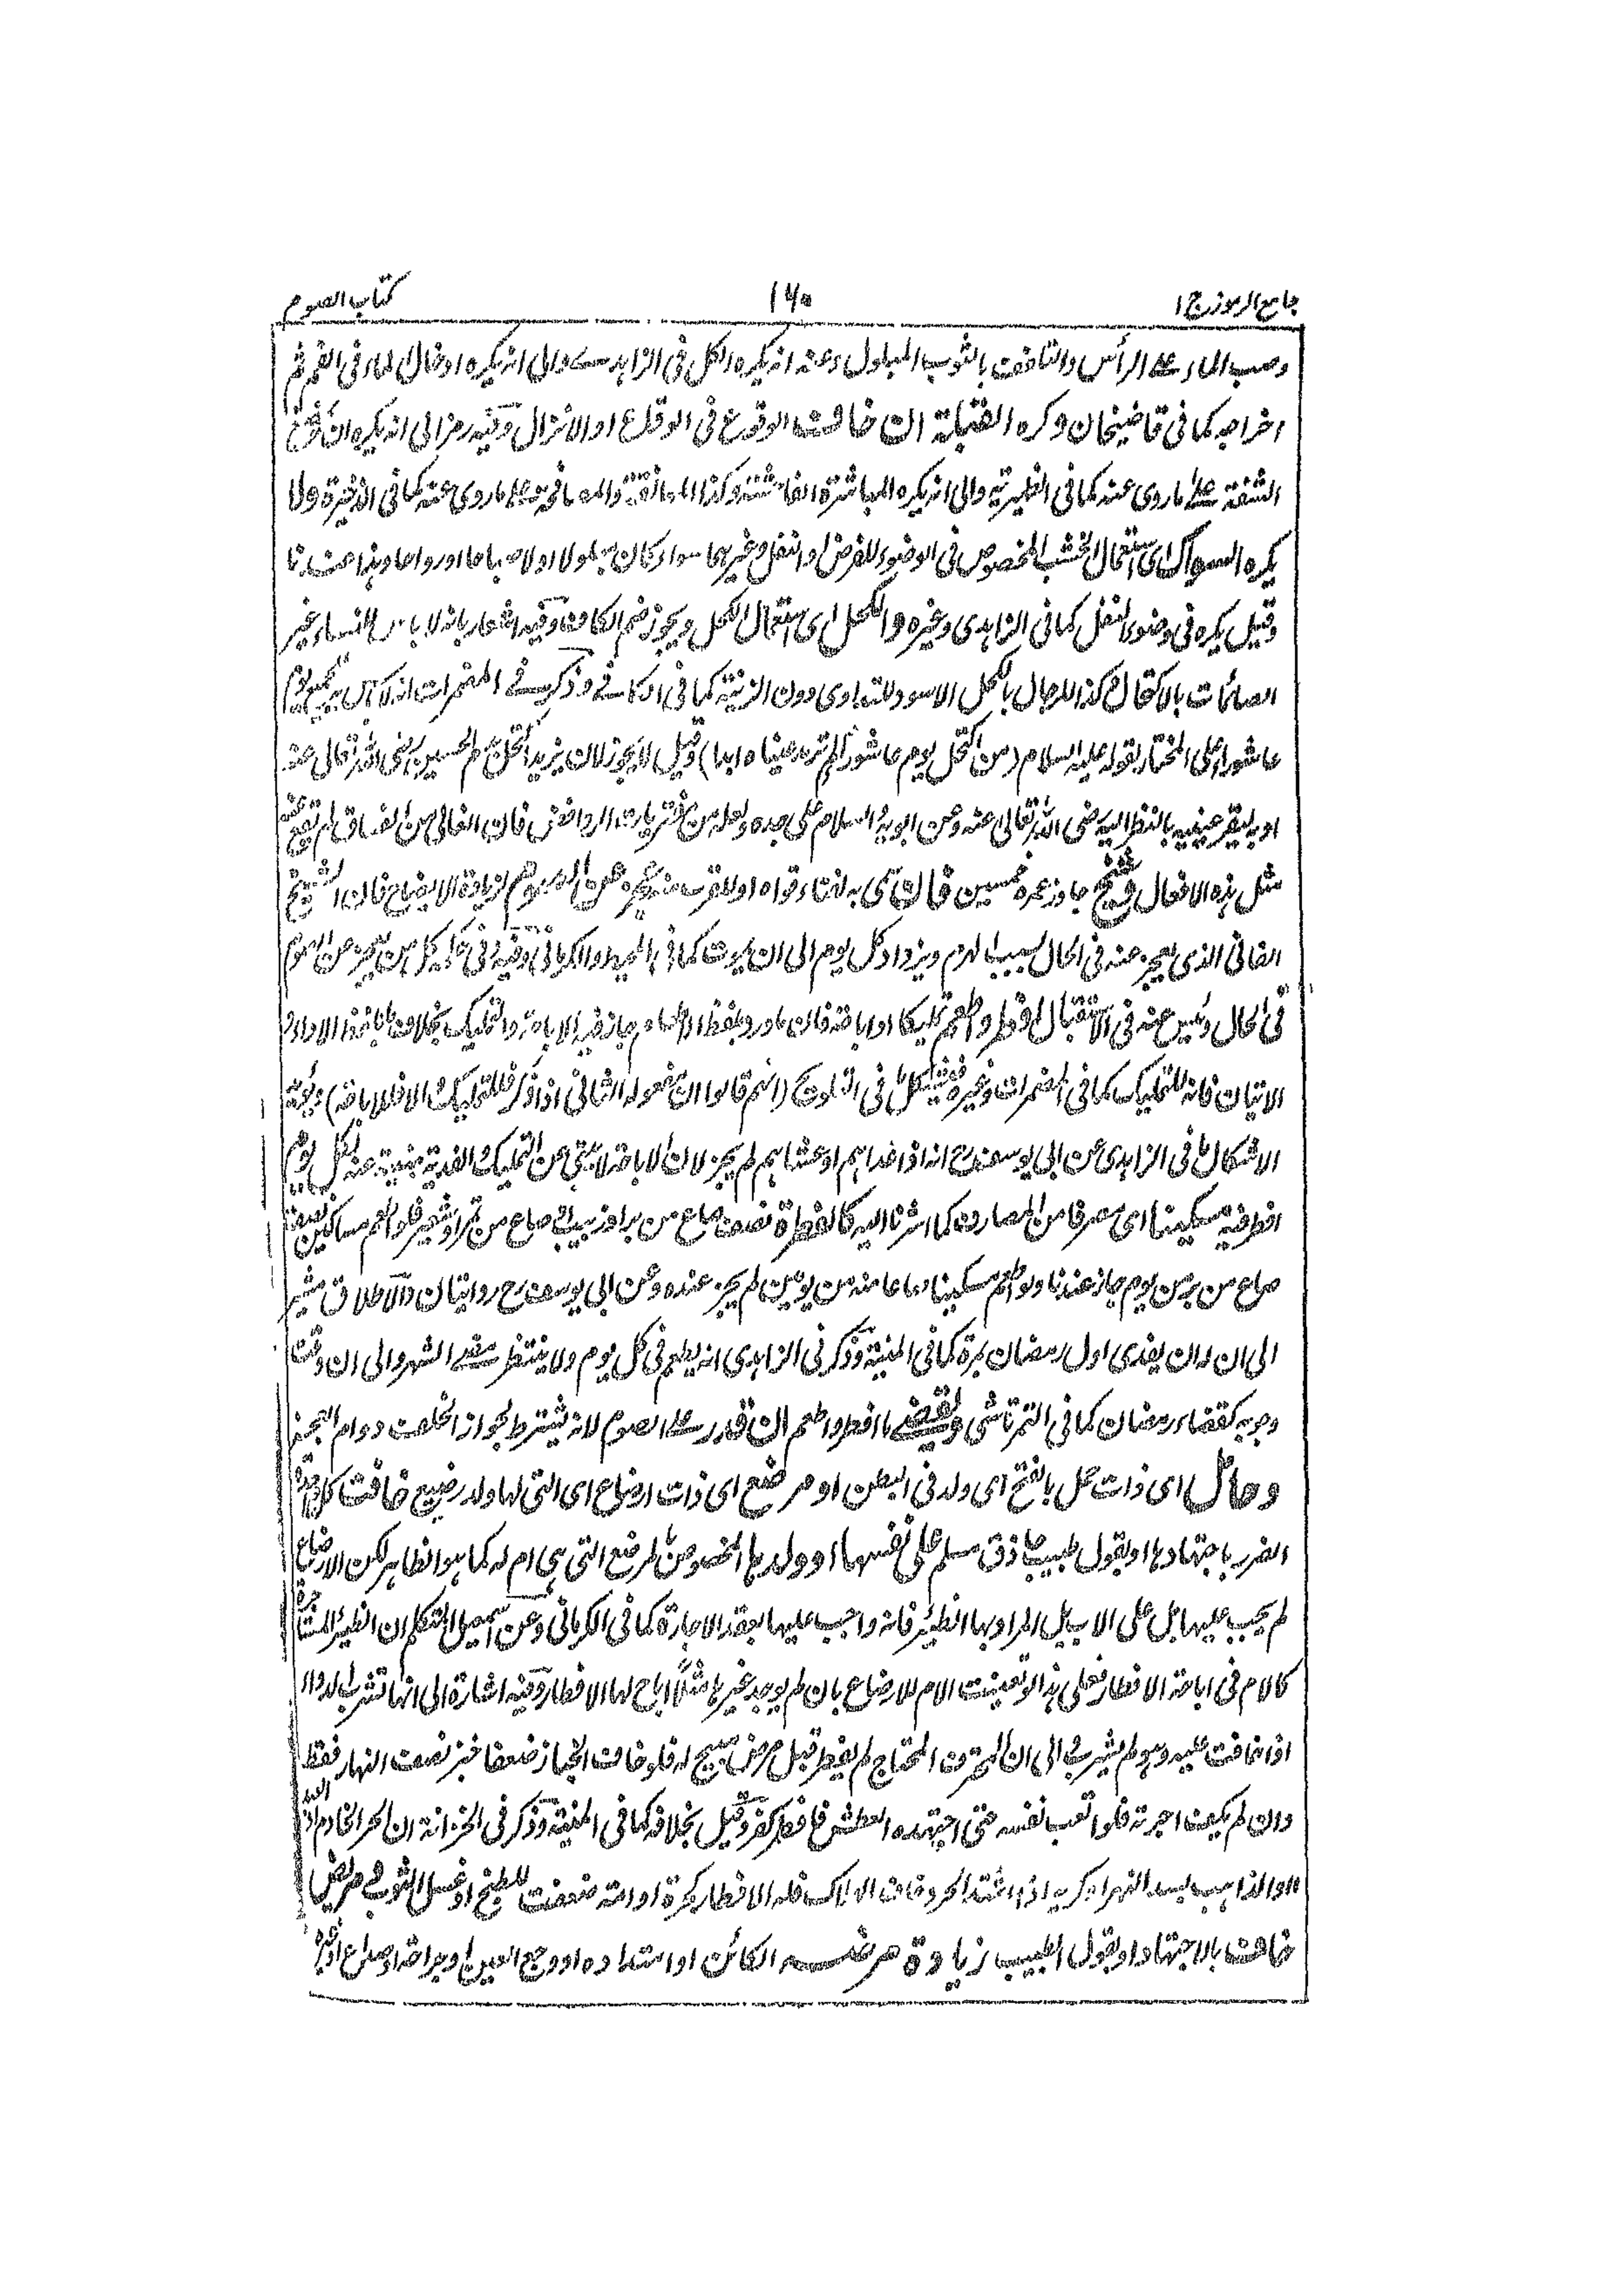 جامع الرموز ج ١
١٦٠
كتاب الصوم
وصب الماء على الرأس والتلفف بالثوب المبلول وعنه انه يكره الكل فى الزاهدى والى انه يكره ادخال الماء فى الفم ثم
اخراجه كما فى قاضيخان وكره القبلة ان خاف الوقوع فى الوقاع او الانزال وفيه رمز الى انه يكره ان
الشفة على ما روى عنه كما فى الظهيرية والى انه يكره المباشرة الفاحشة وكذا المعانقة والمصافحة على ما روى عنه كما فى الذخيرة ولا
يكره السواك اى استعمال الخشب المخصوص فى الوضوء للفرض والنفل وغيرهما سواء كان مبلولا اولا صباحا اورواحا وهذا عندنا
وقيل يكره فى وضوء النفل كما فى الزاهدى وغيره والكحل اى استعمال الكحل ويجوز ضم الكاف وفيه اشعار بانه لا باس للنساء غير
الصائمات بالاكتحال وكذا للرجال بالكحل الاسود للتداوى دون الزينة كما فى الكافى وذكر فى المضمرات انه لا باس به يوم
عاشوراء على المختار لقوله عليه السلام (من اكتحل يوم عاشوراء لم ترمد عيناه ابدا) وقيل لا يجوز لان يزيد اكتحل بدم الحسين رضى الله تعالى عنه
او به ليقر عينيه بالنظر اليه رضى الله تعالى عنه وعن ابويه والسلام على جده ولعله من مفتريات الروافض فان الغالى من الفساق لم يقع عنه
مثل هذه الافعال وشيخ جاوز عمره خمسين فان سمى به لفناء قواه اولقرب منه عجز عن الصوم لزيادة الايضاح فان الشيخ
الفانى الذى يعجز عنه فى الحال لسبب الهرم ويزداد كل يوم الى ان يموت كما فى المحيط والكرمانى وفيه كل من يعجز عن الصوم
فى الحال وئيس عنه فى الاستقبال افطر واطعم تمليكا او اباحة فان ما ورد بلفظ الاطعام جاز فيه الاباحة والتمليك بخلاف ما بلفظ الاداء و
الاتيان فانه للتمليك كما فى المضمرات وغيره فى التلويح (انهم قالوا ان مفعوله الثانى اذا ذكر فللتمليك والا فللاباحة)
الاشكال ما فى الزاهدى عن ابى يوسف رح انه اذا غداهم او عشاهم لم يجز لان الاباحة لا تنبئ عن التمليك والفدية منبئة عنه لكل يوم
افطر فيه مسكينا اى مصرفا من المصارف كما اشرنا اليه كالفطرة نصف صاع من بر او زبيب او صاع من تمر او شعير فلو اطعم مساكين نصف
صاع من بر عن يوم جاز عندنا ولو اطعم مسكينا صاعا منه من يومين لم يجز عنده وعن ابى يوسف رح روايتان والاطلاق مشير
الى ان له ان يفدى اول رمضان بمرة كما فى المنية وذكر فى الزاهدى انه يطعم فى كل يوم ولا ينتظر مضى الشهر والى ان وقت
وجوبه كقضاء رمضان كما فى التمرتاشى ويقضى ما افطر واطعم ان قدر على الصوم لانه يشترط لجواز الخلف دوام العجز
وحامل اى ذات حمل بالفتح اى ولد فى البطن او مرضع اى ذات ارضاع اى التى لها ولد رضيع خافت كل
الضرر باجتهادها او بقول طبيب حاذق مسلم على نفسها او ولدها المخصوص لمرضع التى هى ام له كما هو الظاهر لكن الارضاع
لم يجب عليها بل على الاب بل المراد بها الظئر فانه واجب عليها بعقد الاجارة كما فى الكرمانى وعن اسمعيل المتكلم ان الظئر المستاجرة
كالام فى اباحة الافطار فعلى هذا لو تعينت الام للارضاع بان لم يوجد غيرها مثلا اباح لها الافطار وفيه اشارة الى انها تشرب الدواء
اذا خافت عليه وهو لم يشرب والى ان المحترف المحتاج لم يفطر قبل مرض مبيح له فلو خاف الخباز ضعفا خبز نصف النهار فقط
وان لم يكف اجرته فلو اتعب نفسه حتى اجهده العطش فافطر كفر وقيل بخلافه كما فى المنية وذكر فى الخزانة ان الحر الخادم او العبد
والذاهب لسد النهر او كريه اذا اشتد الحر وخاف الهلاك فله الافطار كحرة او امة ضعفت للطبخ او غسل الثوب ومريض
خاف بالاجتهاد او بقول الطبيب زيادة مرضه الكائن او امتداده او وجع العين او جراحة او صداع او غيره